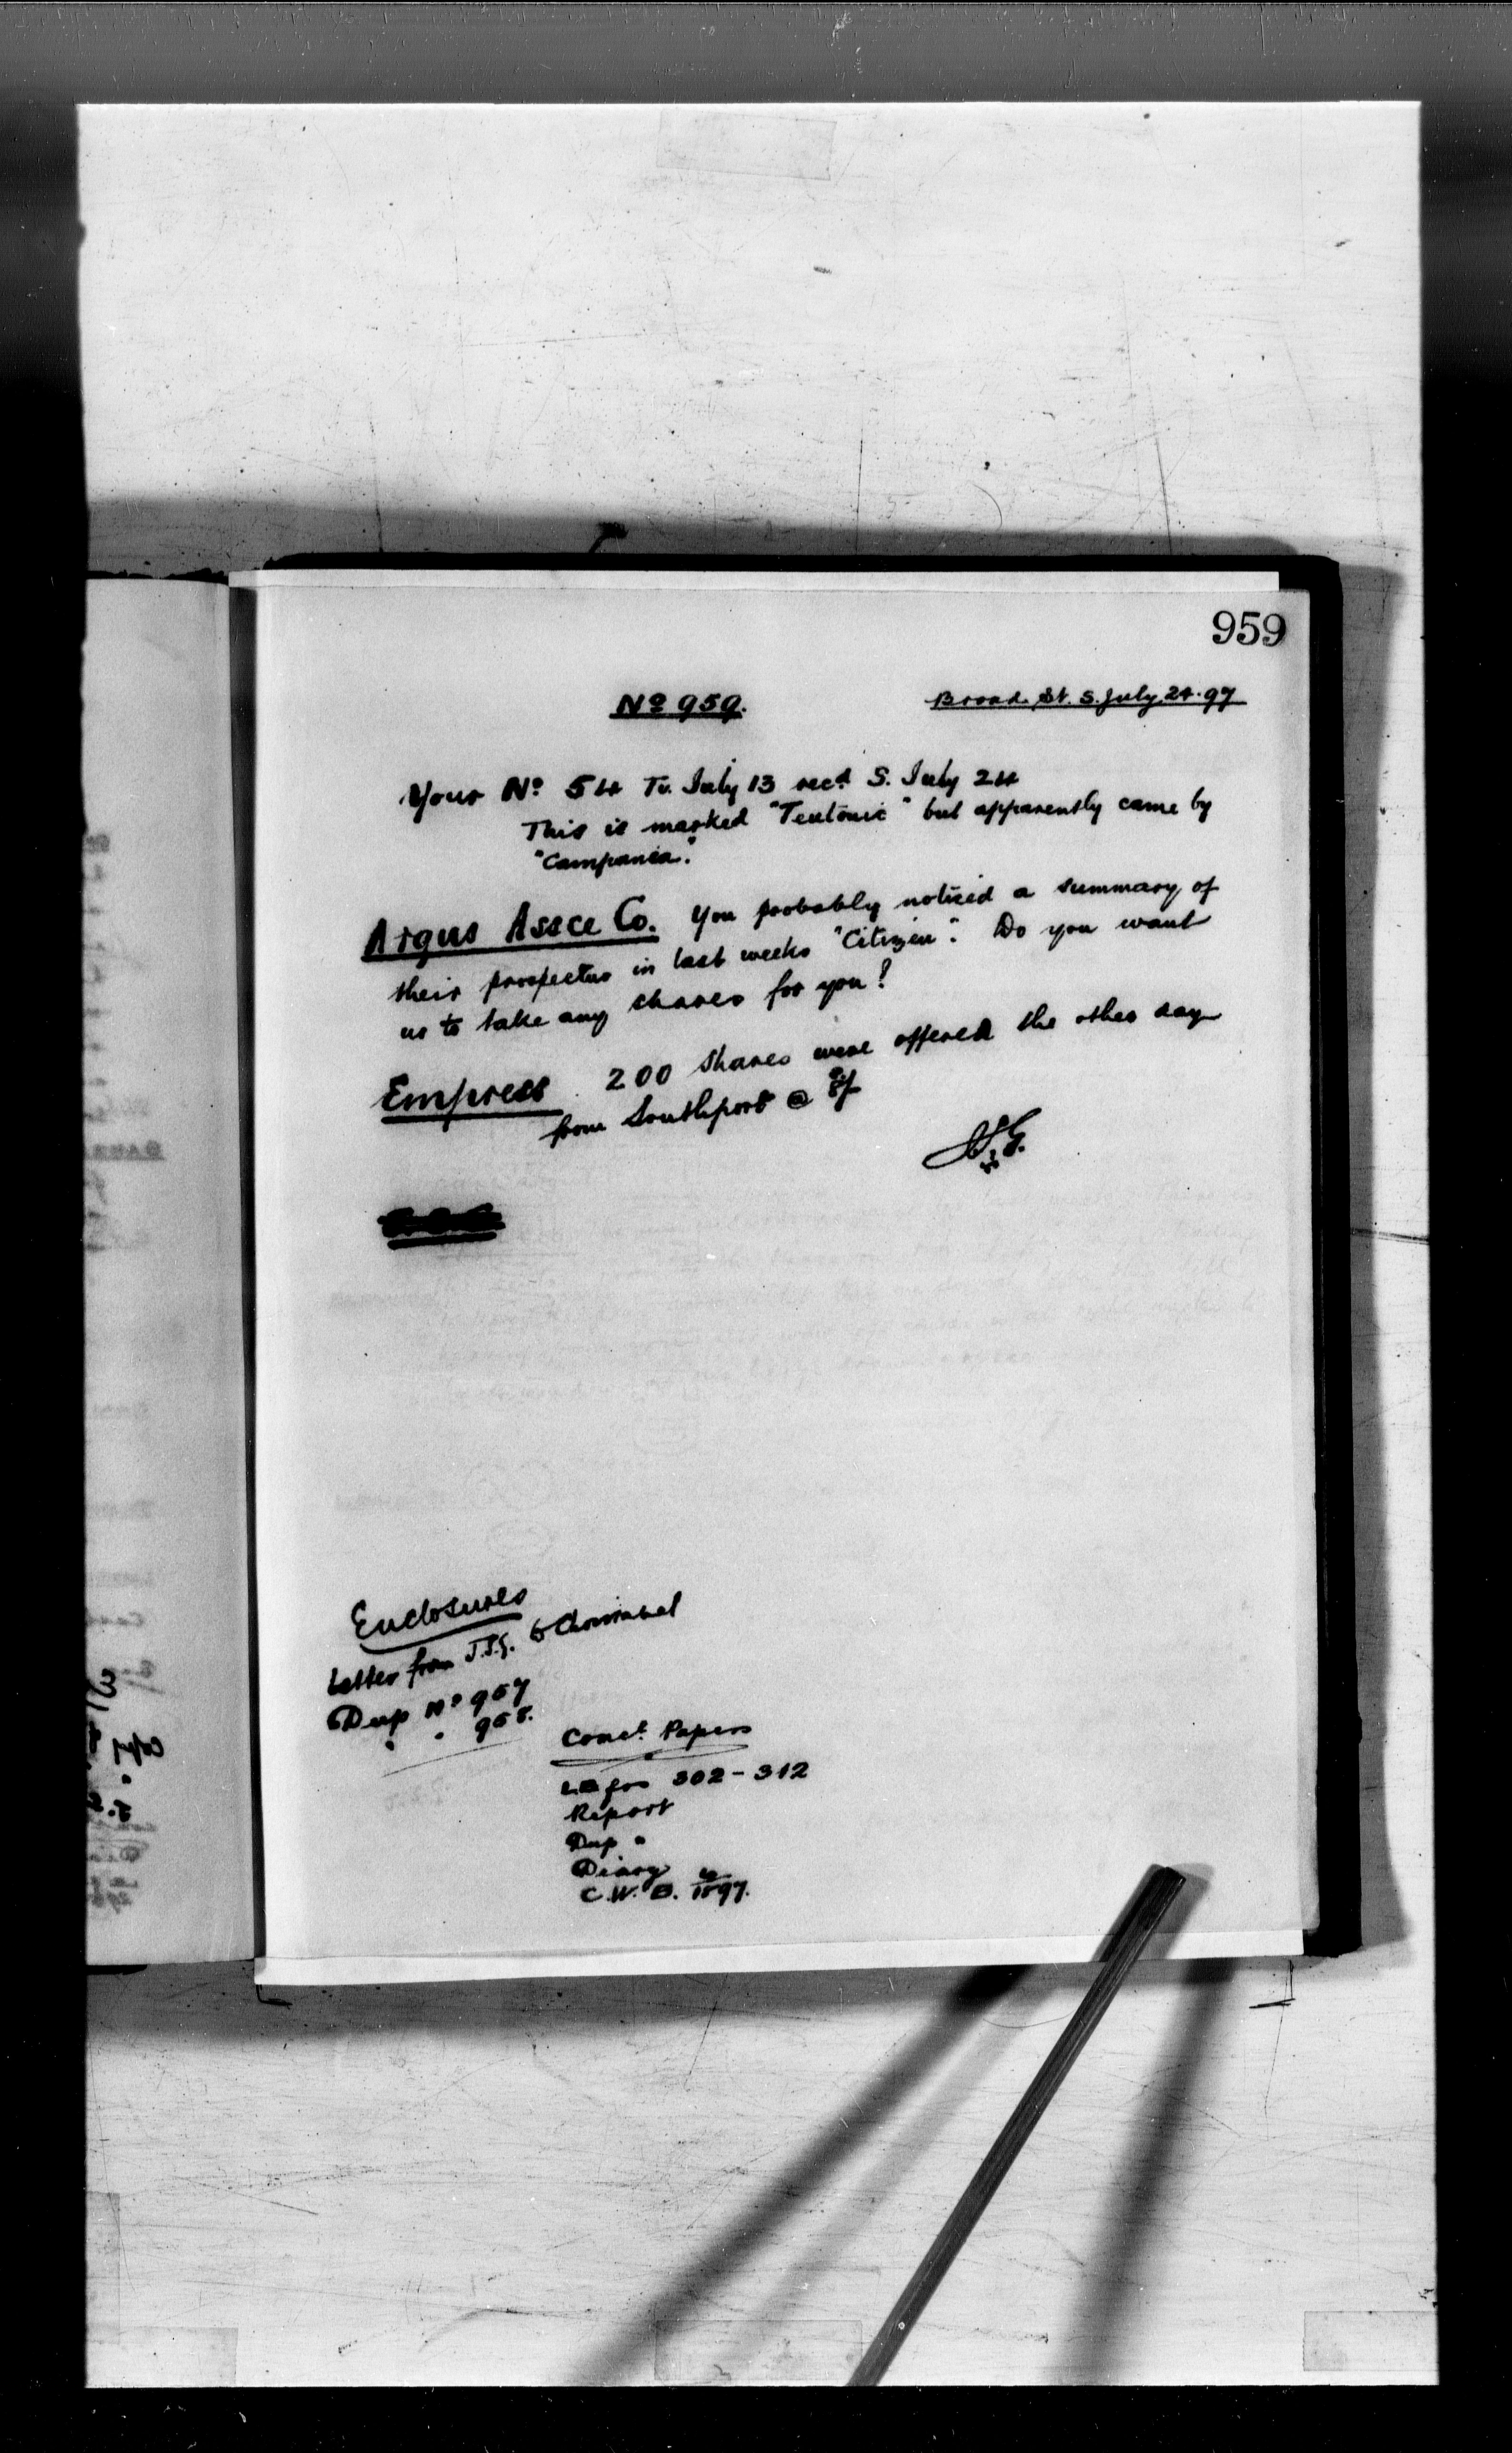 959
No 959.
Broad. St. S. July. 24. 97
Your No 54 Tu. July 13 recd S. July 24
This is marked "Teutonic" but apparently came by
"Campania".
Argus Assce Co. You probably noticed a summary of
their prospectus in last weeks "Citizen". Do you want
us to take any shares for you?
Empress 200 shares were offered the other day
from Southport @
Enclosures
Letter from J.S.G. to
Dup No 957
" " 958.
Comcl. Papers
Lagos 302-312
Report
Dup "
Diary
C.W.B.